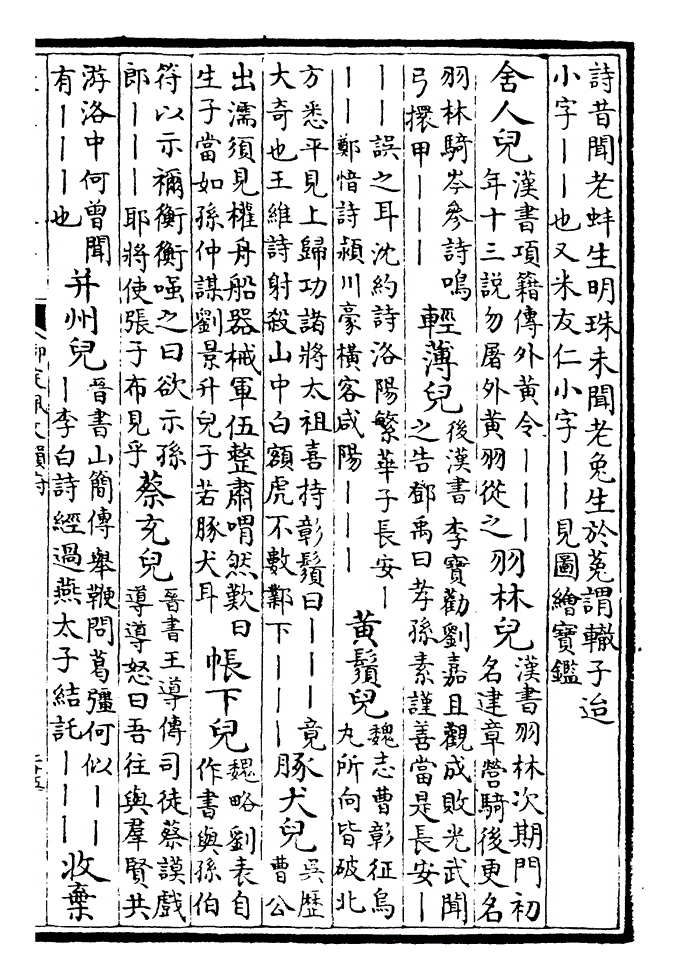 詩昔聞老蚌生明珠未聞老兔生於菟謂轍子迨
小字丨丨也又米友仁小字丨丨見圖繪寶鑑
舍人兒
漢書項籍傳外黃令丨丨丨
年十三說勿屠外黃羽從之
羽林兒
漢書羽林次期門初
名建章營騎後更名
羽林騎岑參詩鳴
弓擐甲丨丨丨
輕薄兒
後漢書李寶勸劉嘉且觀成敗光武聞
之告鄧禹曰孝孫素謹善當是長安丨
丨丨誤之耳沈約詩洛陽繁華子長安丨
丨丨鄭愔詩潁川豪橫客咸陽丨丨丨
黃鬚兒
魏志曹彰征烏
丸所向皆破北
方悉平見上歸功諸將太祖喜持彰鬚曰丨丨丨竟
大奇也王維詩射殺山中白額虎不數鄴下丨丨丨
豚犬兒
吳歷
曹公
出濡須見權舟船器械軍伍整肅喟然歎曰
生子當如孫仲謀劉景升兒子若豚犬耳
帳下兒
魏略劉表自
作書與孫伯
符以示禰衡衡嗤之曰欲示孫
郎丨丨丨耶將使張子布見乎
蔡充兒
晉書王導傳司徒蔡謨戲
導導怒曰吾往與羣賢共
游洛中何曾聞
有丨丨丨也
并州兒
晉書山簡傳舉鞭問葛彊何似丨丨
丨李白詩經過燕太子結託丨丨丨
收棄